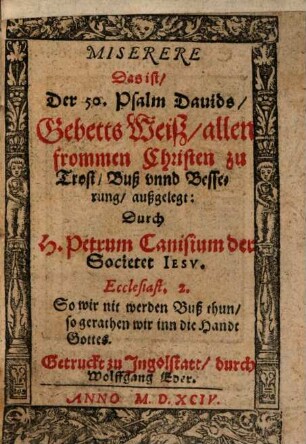 MISERERE
Das ist/
Der 50. Psalm Dauids/
Gebetts Weiß/allen
frommen Christen zu
Trost/ Buß vnnd Besse-
rung/ außgelegt:
Durch
H. Petrum Canisium der
Societet IESV.
Ecclesiast. 2.
So wir nit werden Buß thun/
so gerathen wir inn die Handt
Gottes.
Getruckt zu Ingolstatt/ durch
Wolffgang Eder.
ANNO M. D. XCIV.